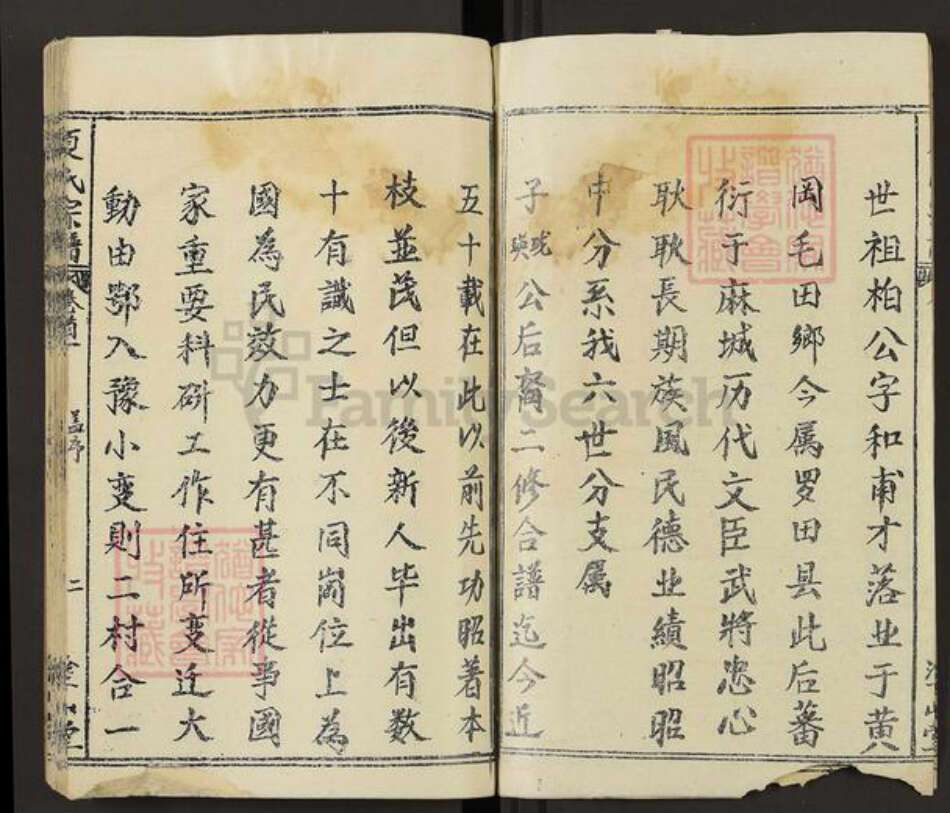 世祖柏公字和甫才落业于黄
岡毛田鄉今属罗田县此后蕃
衍于麻城历代文臣武將忠心
耿耿長期族風民德业績昭昭
中分系我六世分支属
子珖瑛公后裔二修合譜迄今近
五十載在此以前先功昭著本
枝並茂但以後新人毕出有数
十有識之士在不同崗位上為
國為民效力更有甚者從事國
家重要科研工作住所变迁大
動由鄂入豫小变則二村合一
夏氏宗譜
卷首
序
二
堂
FamilySearch